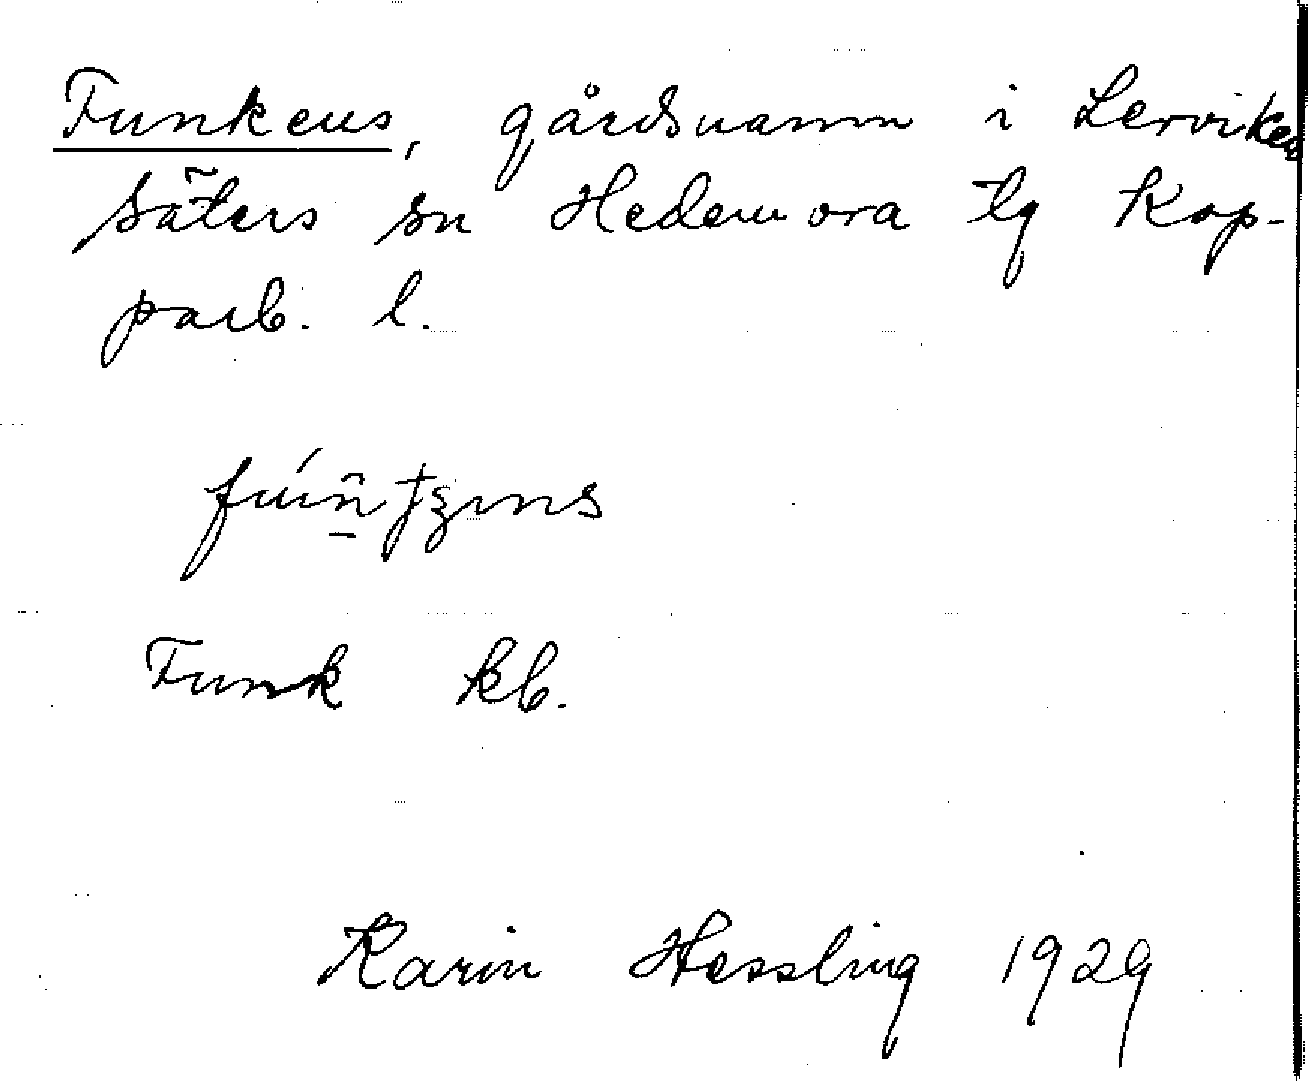 Funkens, gårdsnamn i Lerviken
Säters sn Hedemora tg Kop-
parb. l.
Funk kb.
Karin Hessling 1929